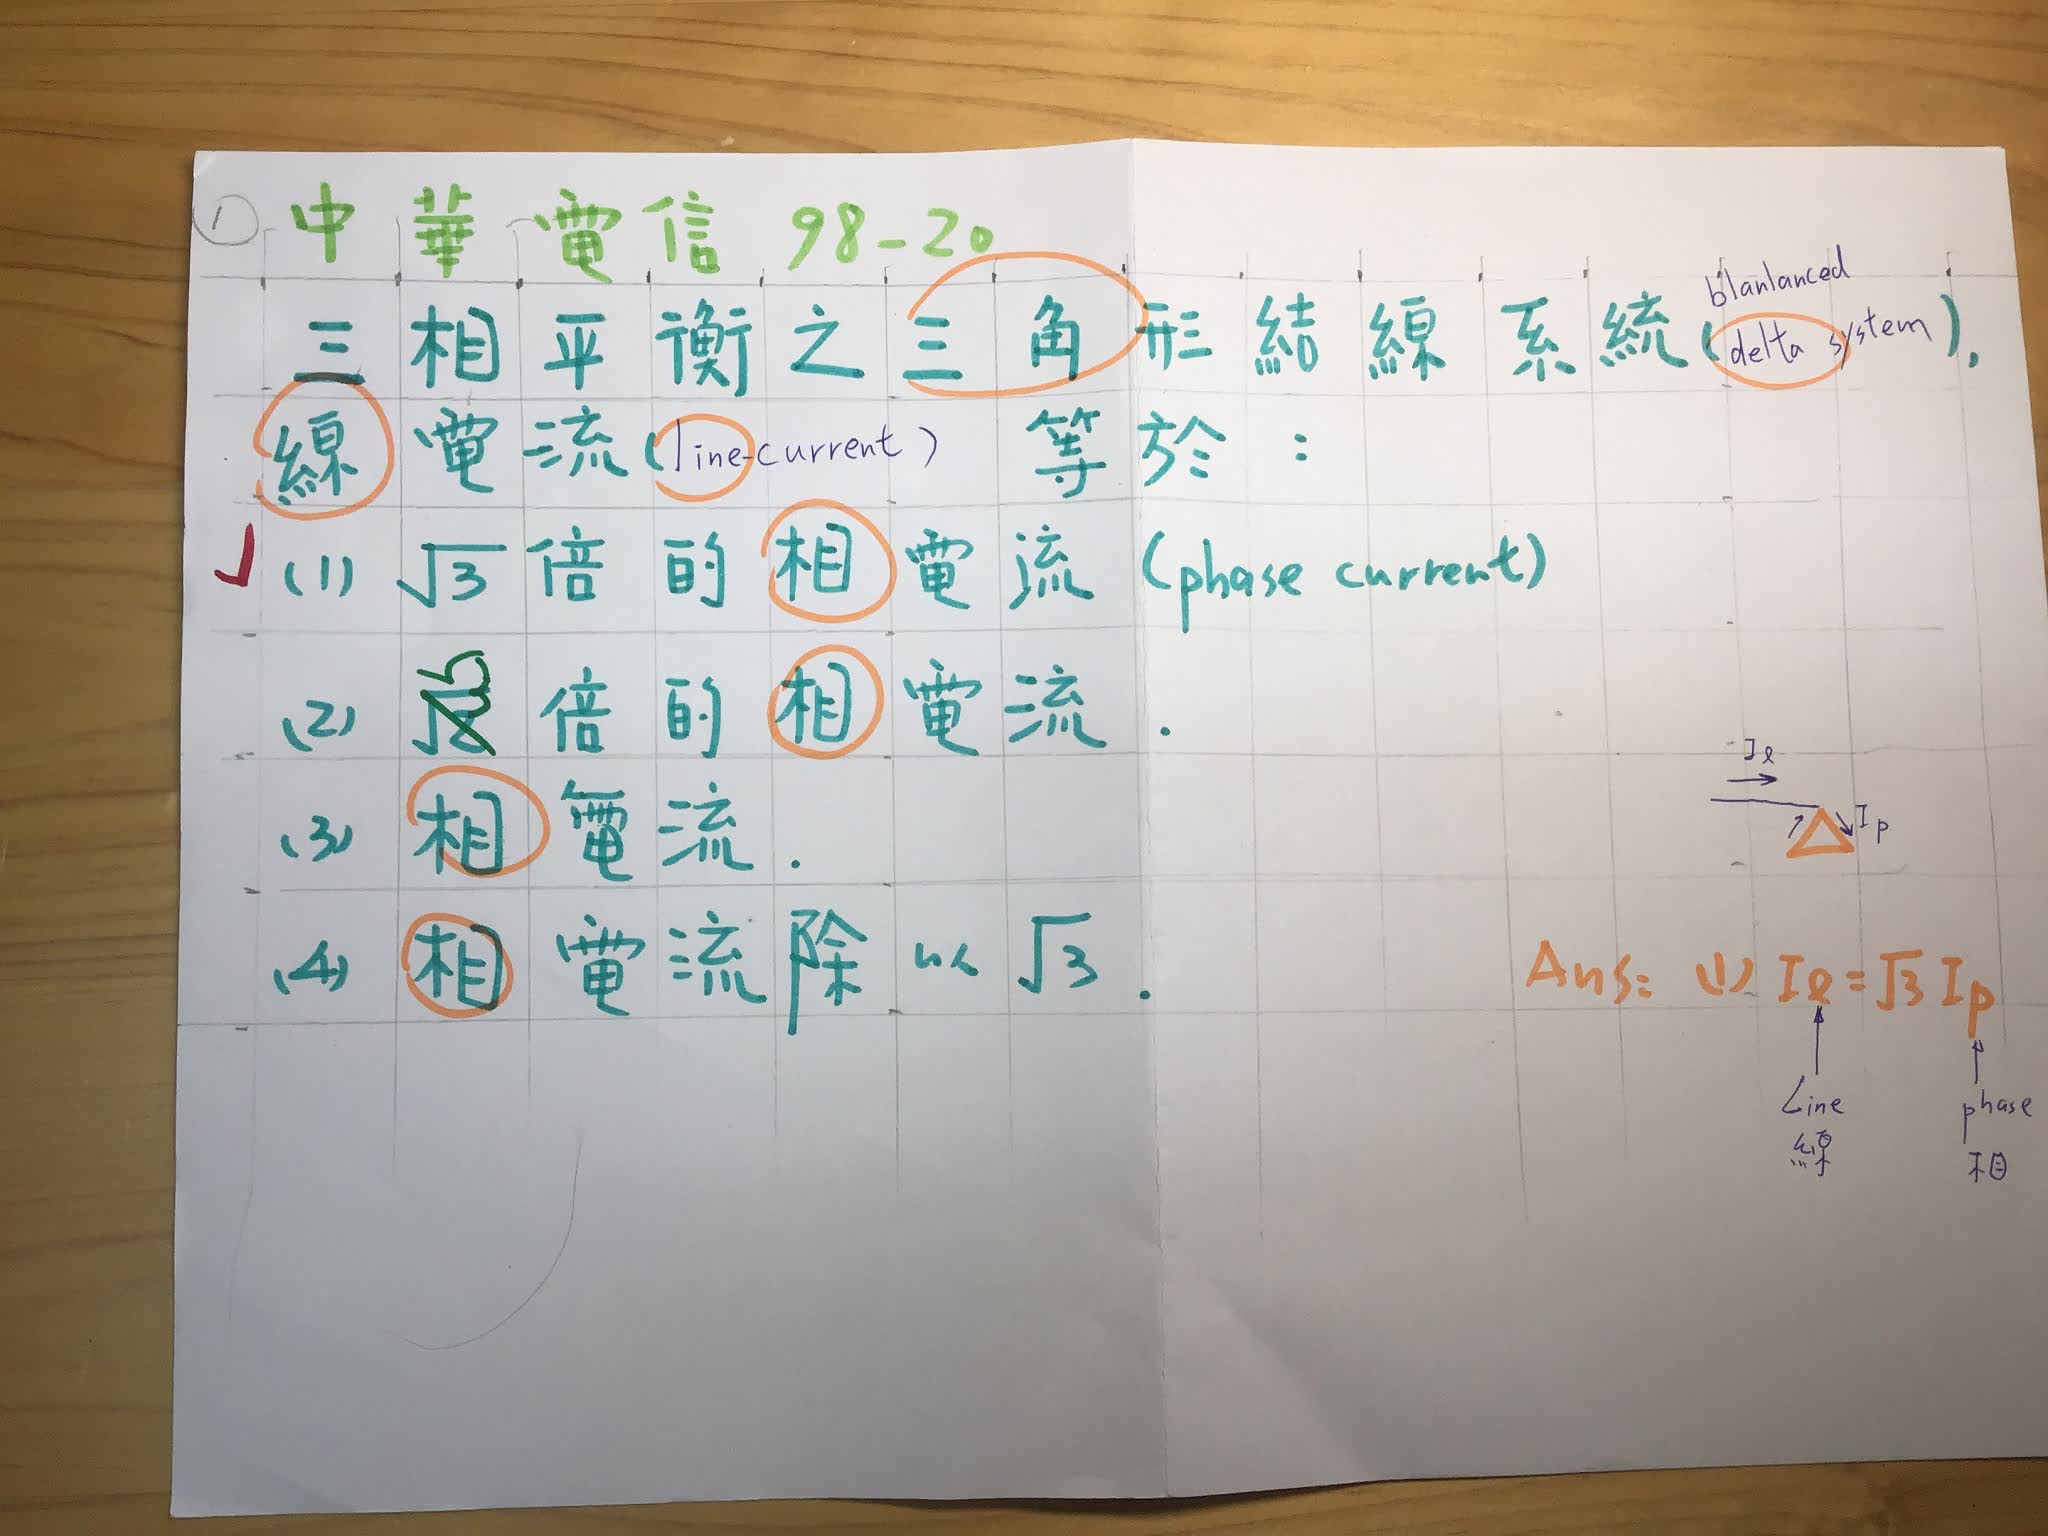 1
中華電信 98-20
三相平衡之三角形結線系統(blanlanced delta system).
線電流(line-current) 等於:
(1) √3 倍的相電流 (phase current)
(2) 倍的相電流.
(3) 相電流.
(4) 相電流除以√3.
Iℓ
Ip
Ans: (1) Iℓ=√3 Ip
Line phase
線 相